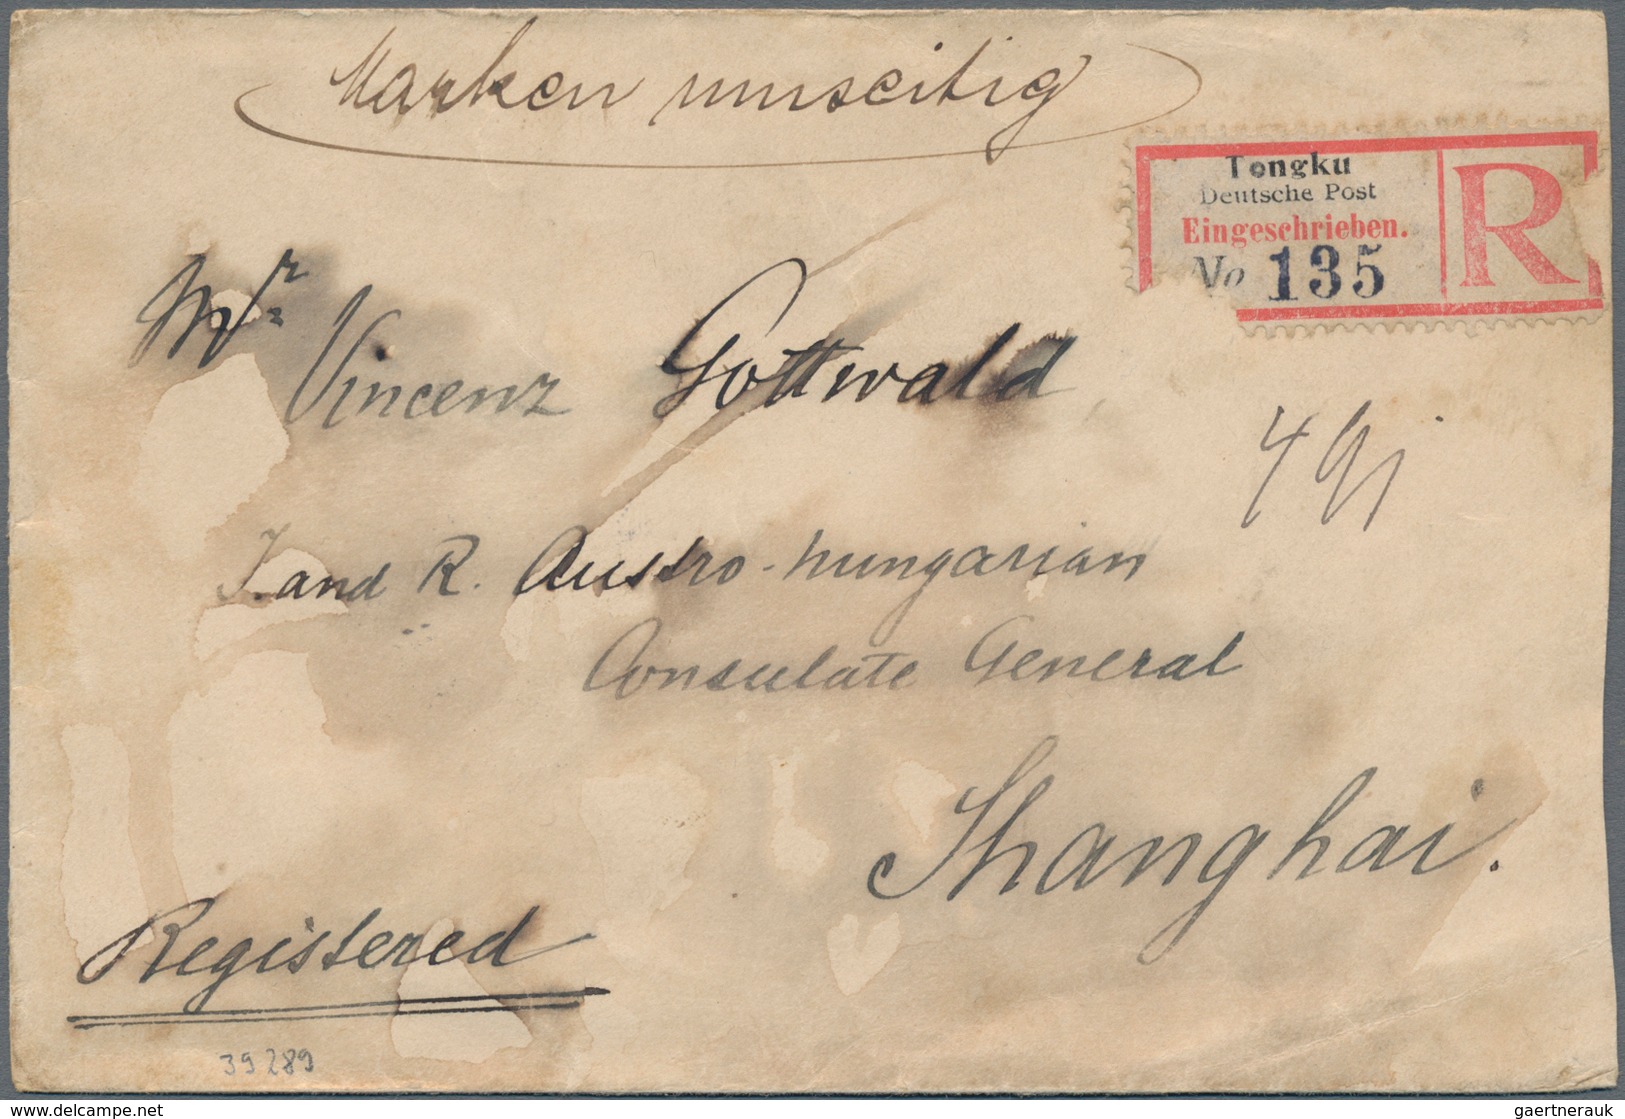 Marken umseitig
Tongku
Deutsche Post
Eingeschrieben.
No 135
R
Mr Vincenz Gottwald
I. and R. Austro-hungarian
Consulate General
Shanghai.
Registered
39289
delcampe.net
gaertnerauk